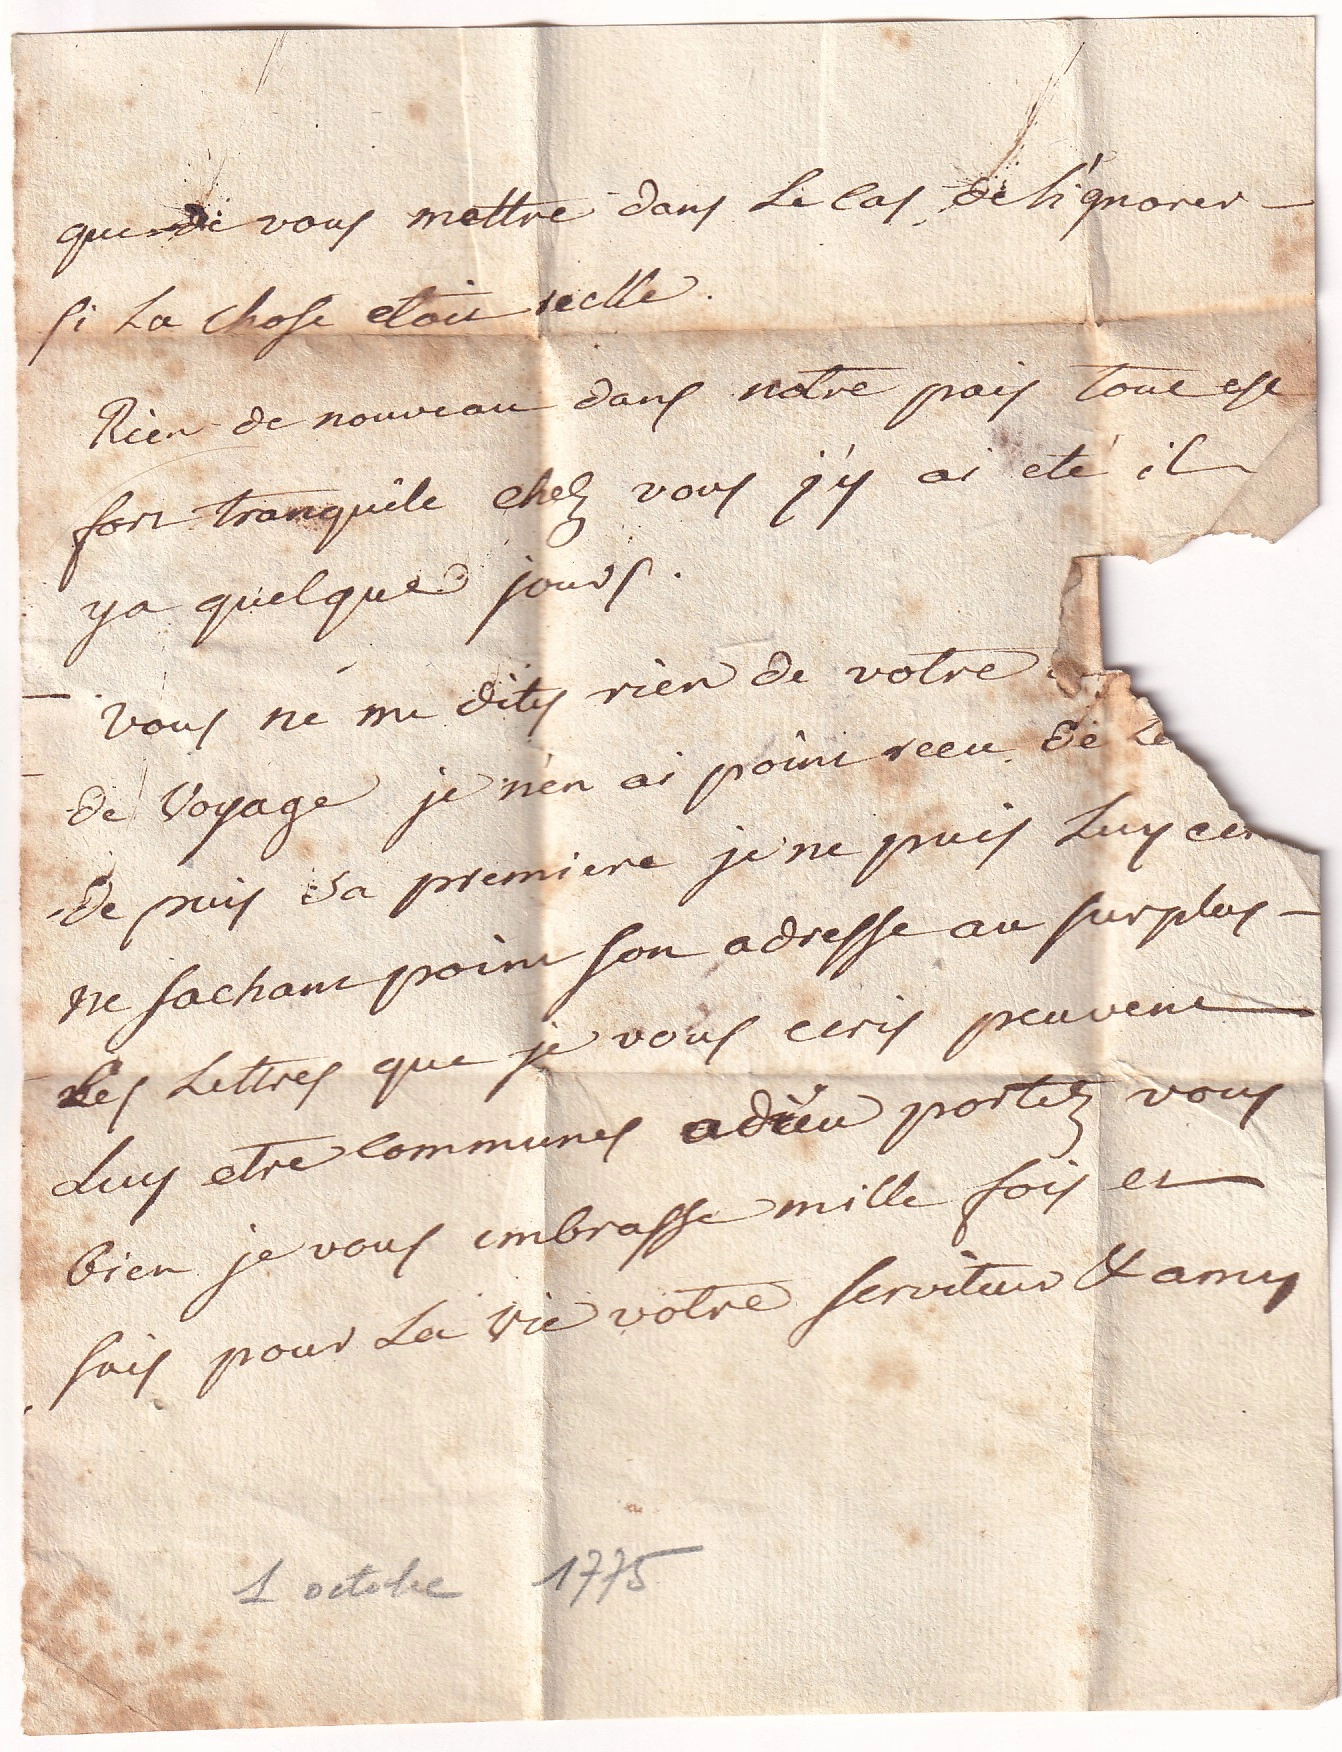 que de vous mettre dans Le Cas de L'ignorer
si La chose etoit reelle.
Rien de nouveau dans notre païs tout est
fort tranquile chez vous j'y ai eté il
ya quelque jours.
Vous ne me dites rien de votre
de Voyage je n'en ai point recu de Le
de puis sa premiere je ne puis Luy ecr
ne sachant point son adresse au surplus
Les Lettres que je vous ecris peuvent
Luy etre communes adieu portez vous
bien je vous embrasse mille fois et
suis pour La Vie votre serviteur & amy
1 octobre 1775